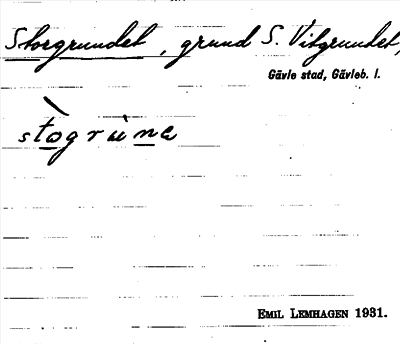 Storgrundet, grund S. Vitgrundet,
Gävle stad, Gävleb. l.
stògrùne
EMIL LEMHAGEN 1931.